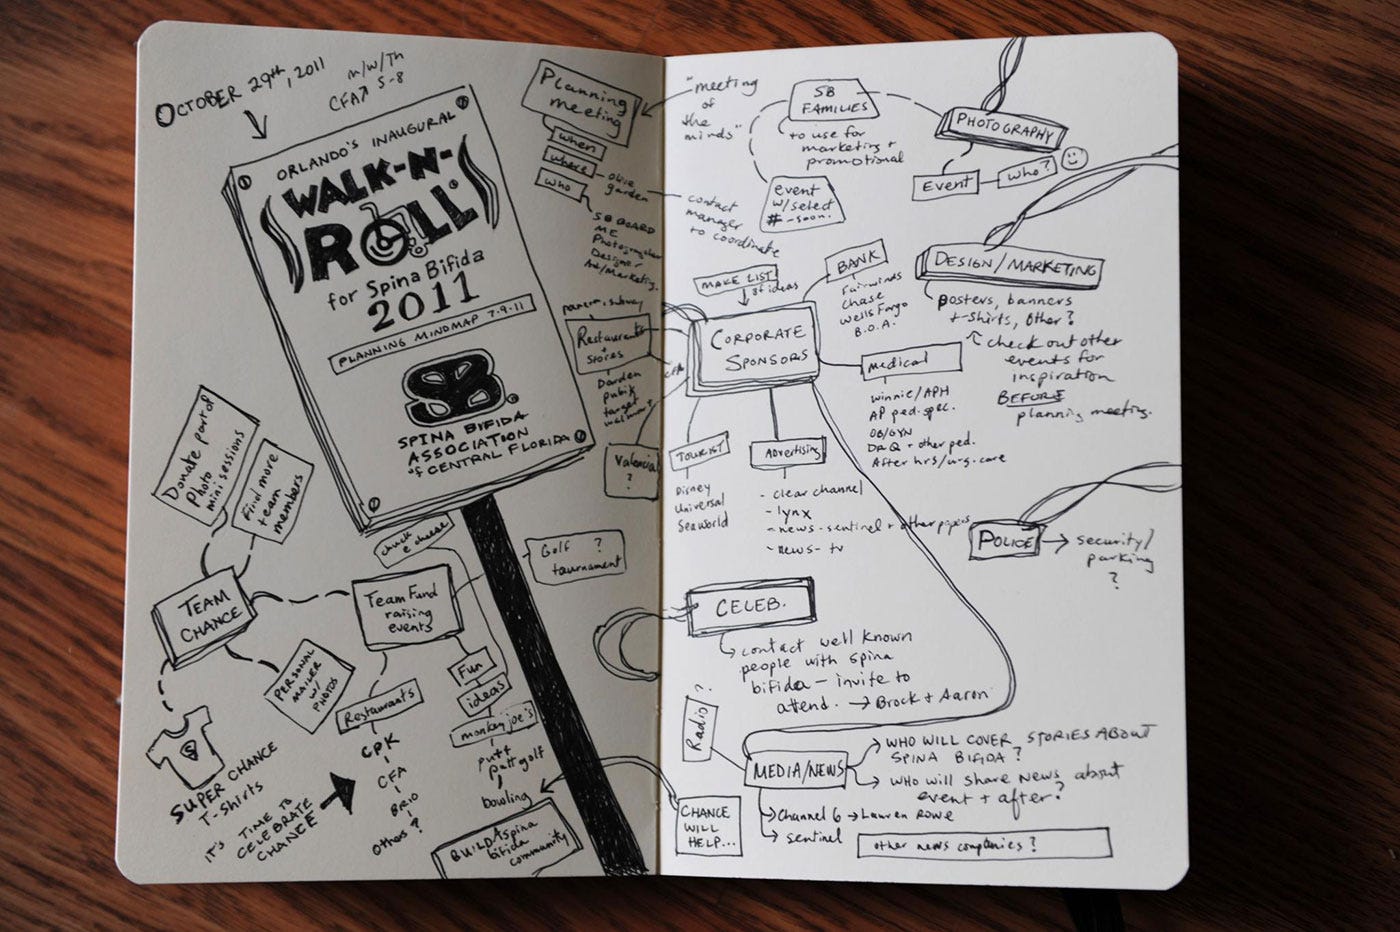 OCTOBER 29th, 2011
M/W/Th
CFA 5-8
ORLANDO'S INAUGURAL
WALK-N-
ROLL
for Spina Bifida
2011
PLANNING MINDMAP 7.9.11
SB
SPINA BIFIDA
ASSOCIATION
of CENTRAL FLORIDA
Planning
meeting
when
where
who
olive
garden
SB BOARD
ME
Photographer
Designer
Ad/Marketing
panera, subway
Restaurants
+
stores
Darden
publix
target
walmart
CFA
Valencia
?
Donate part of
Photo
mini sessions
Find more
team
members
TEAM
CHANCE
PERSONAL
MAILER
w/
PHOTOS
S
SUPER CHANCE
T-Shirts
IT'S TIME TO
CELEBRATE
CHANCE
chuck
e cheese
Team Fund
raising
events
Golf ?
tournament
Restaurants
CPK
CFA
BRIO
others?
Fun
ideas
monkey joe's
putt
putt golf
bowling
BUILD A spina
bifida
community
"meeting
of
the
minds"
contact
manager
to coordinate
SB
FAMILIES
to use for
marketing +
promotional
event
w/select
# -soon.
PHOTOGRAPHY
Event
who?
DESIGN/MARKETING
posters, banners
t-shirts, other?
check out other
events for
inspiration
BEFORE
planning meeting.
MAKE LIST
of ideas
CORPORATE
SPONSORS
BANK
Fairwinds
chase
wells Fargo
B.O.A.
medical
winnie/APH
AP ped. spec.
OB/GYN
DR Q + other ped.
After hrs/urg. care
TOURIST
Disney
Universal
Seaworld
Advertising
- clear channel
- lynx
- news-sentinel + other papers
- news-tv
POLICE
security/
parking
?
CELEB.
contact well known
people with spina
bifida - invite to
attend. → Brock + Aaron
Radio?
MEDIA/NEWS
WHO WILL COVER STORIES ABOUT
SPINA BIFIDA?
WHO will SHARE NEWS about
event + after?
Channel 6 → Lauren Rowe
Sentinel
other news companies?
CHANCE
WILL
HELP...